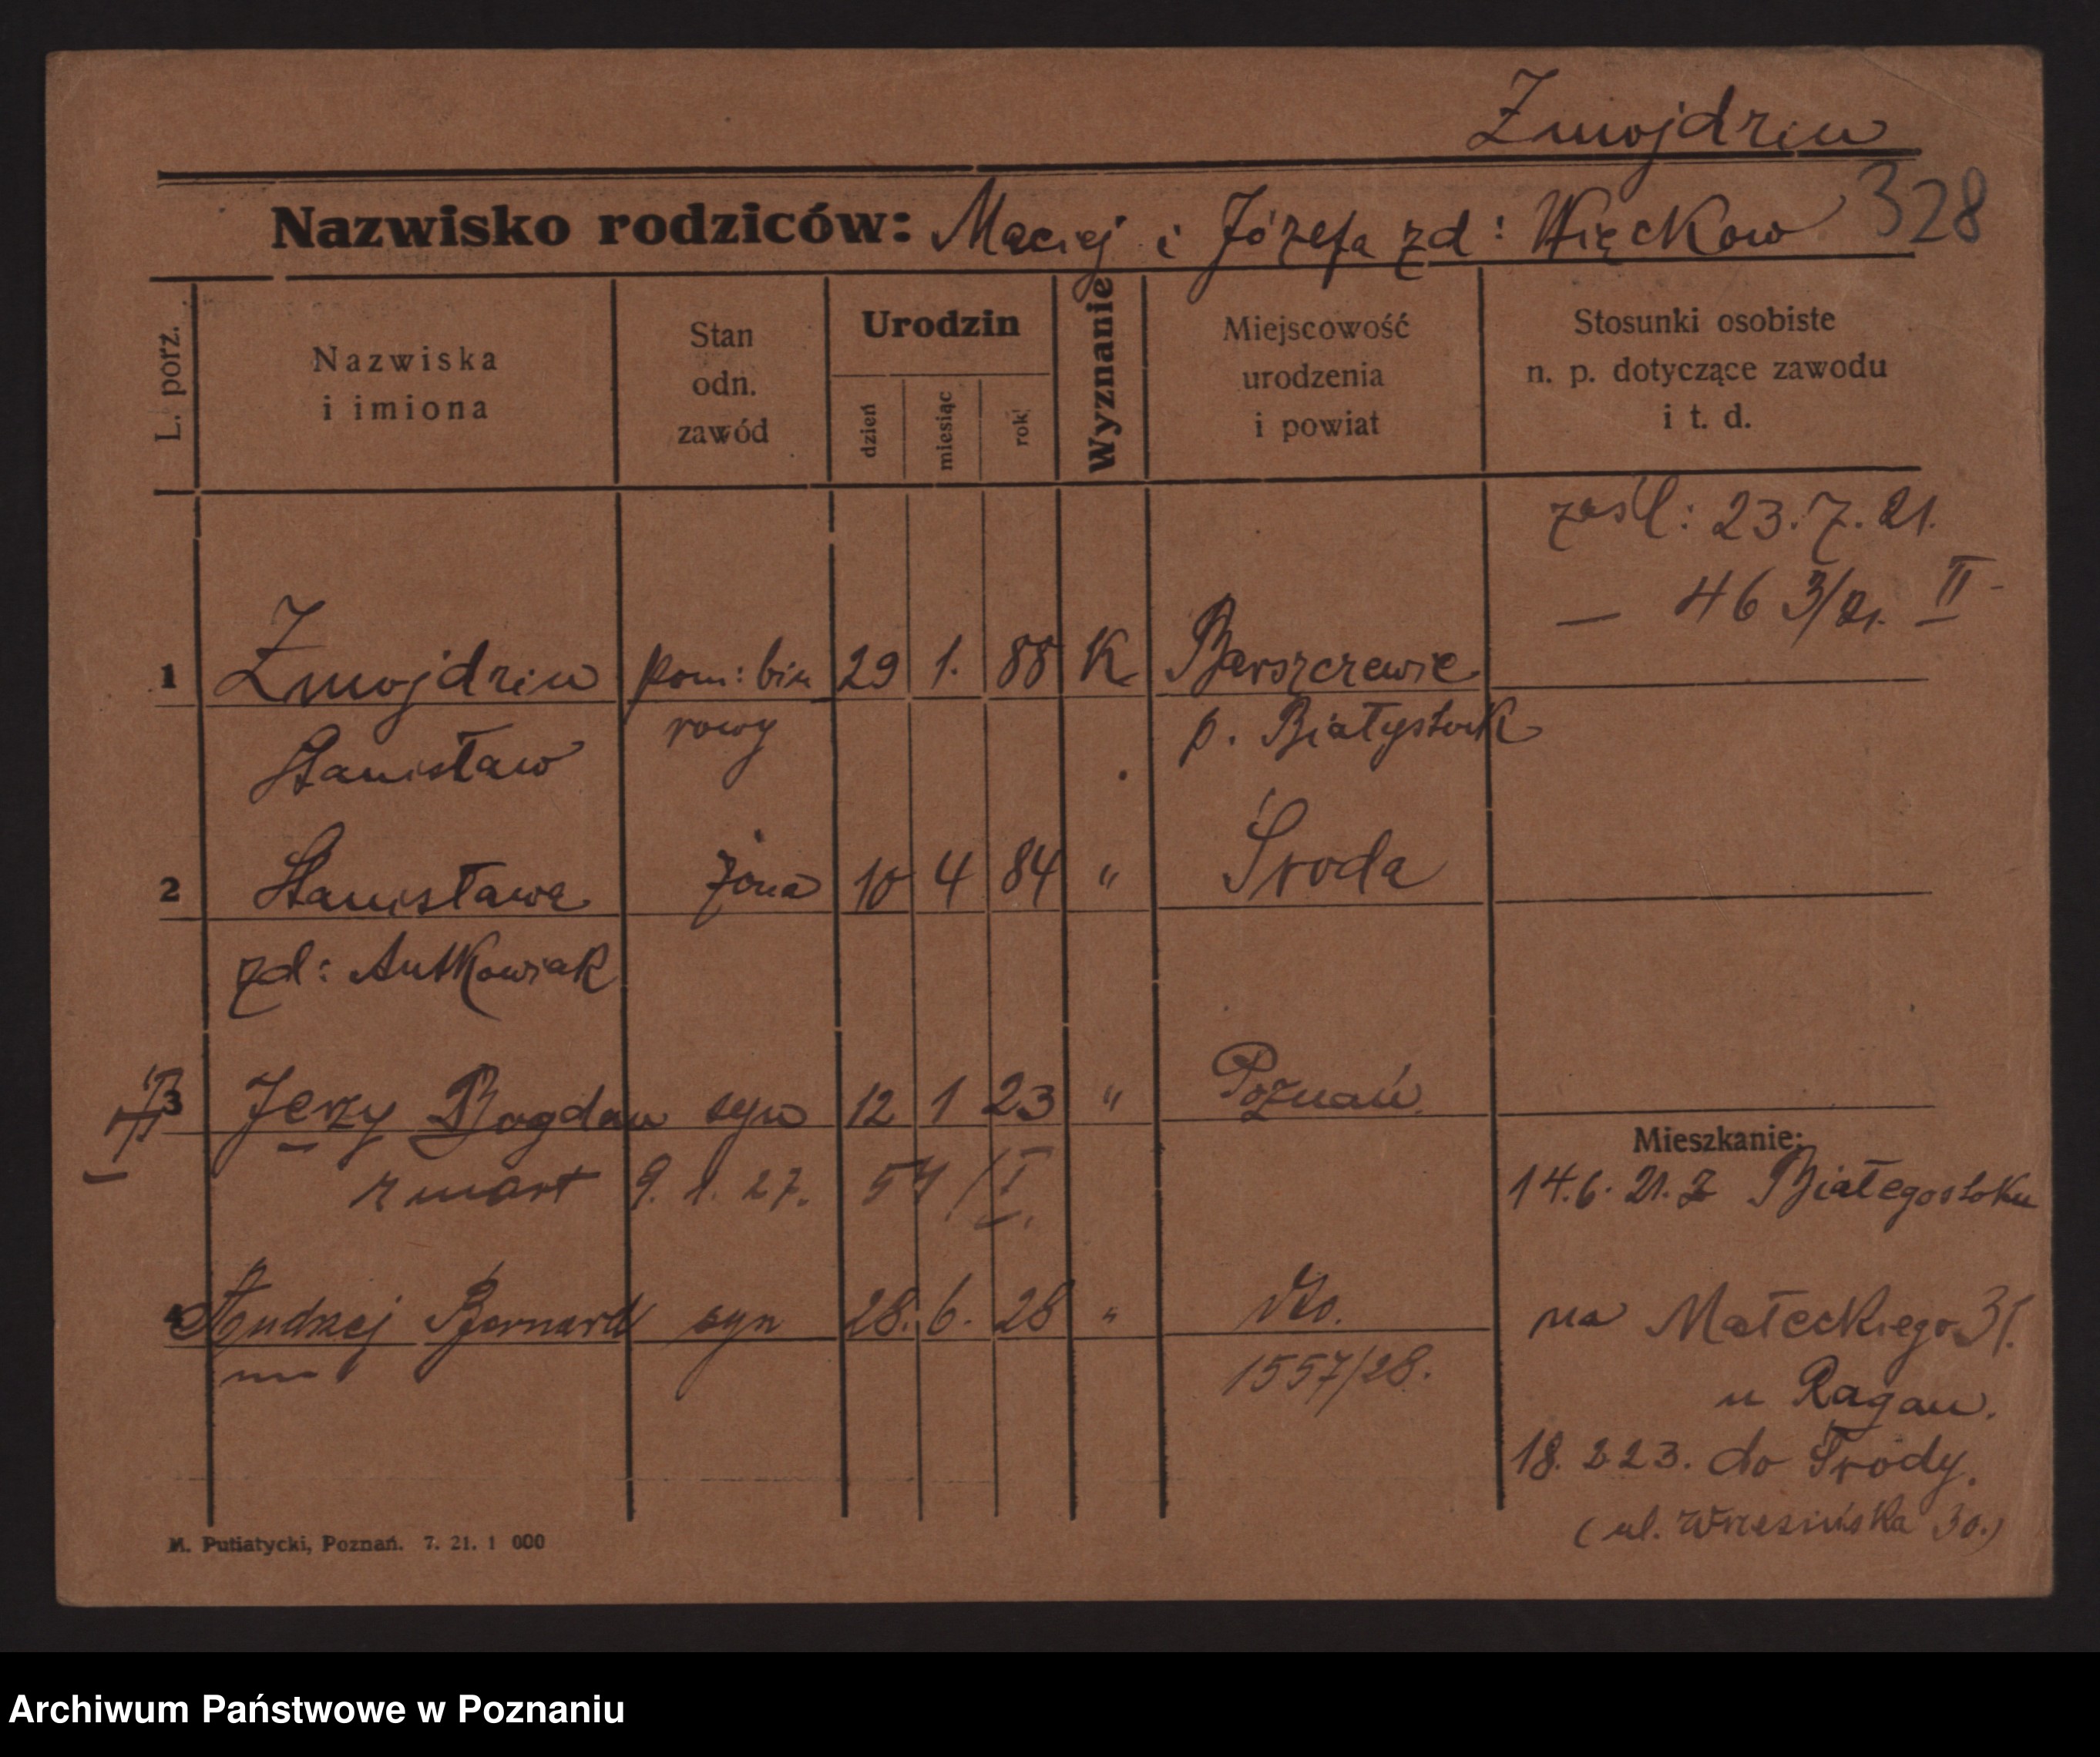 Żmojdzin
Nazwisko rodziców: Maciej i Józefa zd: Więckow 328
L. porz.
Nazwiska
i imiona
Stan
odn.
zawód
Urodzin
dzień
miesiąc
rok
Wyznanie
Miejscowość
urodzenia
i powiat
Stosunki osobiste
n. p. dotyczące zawodu
i t. d.
zaśl: 23.7.21.
— 463/21. II
1 Żmojdzin pom: biu 29 1. 88 K Barszczewie
Stanisław rowy p. Białystok
2 Stanisława żona 10 4 84 " Środa
zd: Antkowiak
3 Jerzy Bogdan syn 12 1 23 " Poznań
zmart 9. 1. 27. 54/I.
Mieszkanie:
14.6.21. z Białegostoku
4 Andrzej Bernard syn 28. 6. 28 " dto.
1557/28.
na Małeckiego 31.
u Ragan.
18. 2 23. do Środy.
(ul. Wrzesińska 30.)
M. Putiatycki, Poznań. 7. 21. 1 000
Archiwum Państwowe w Poznaniu